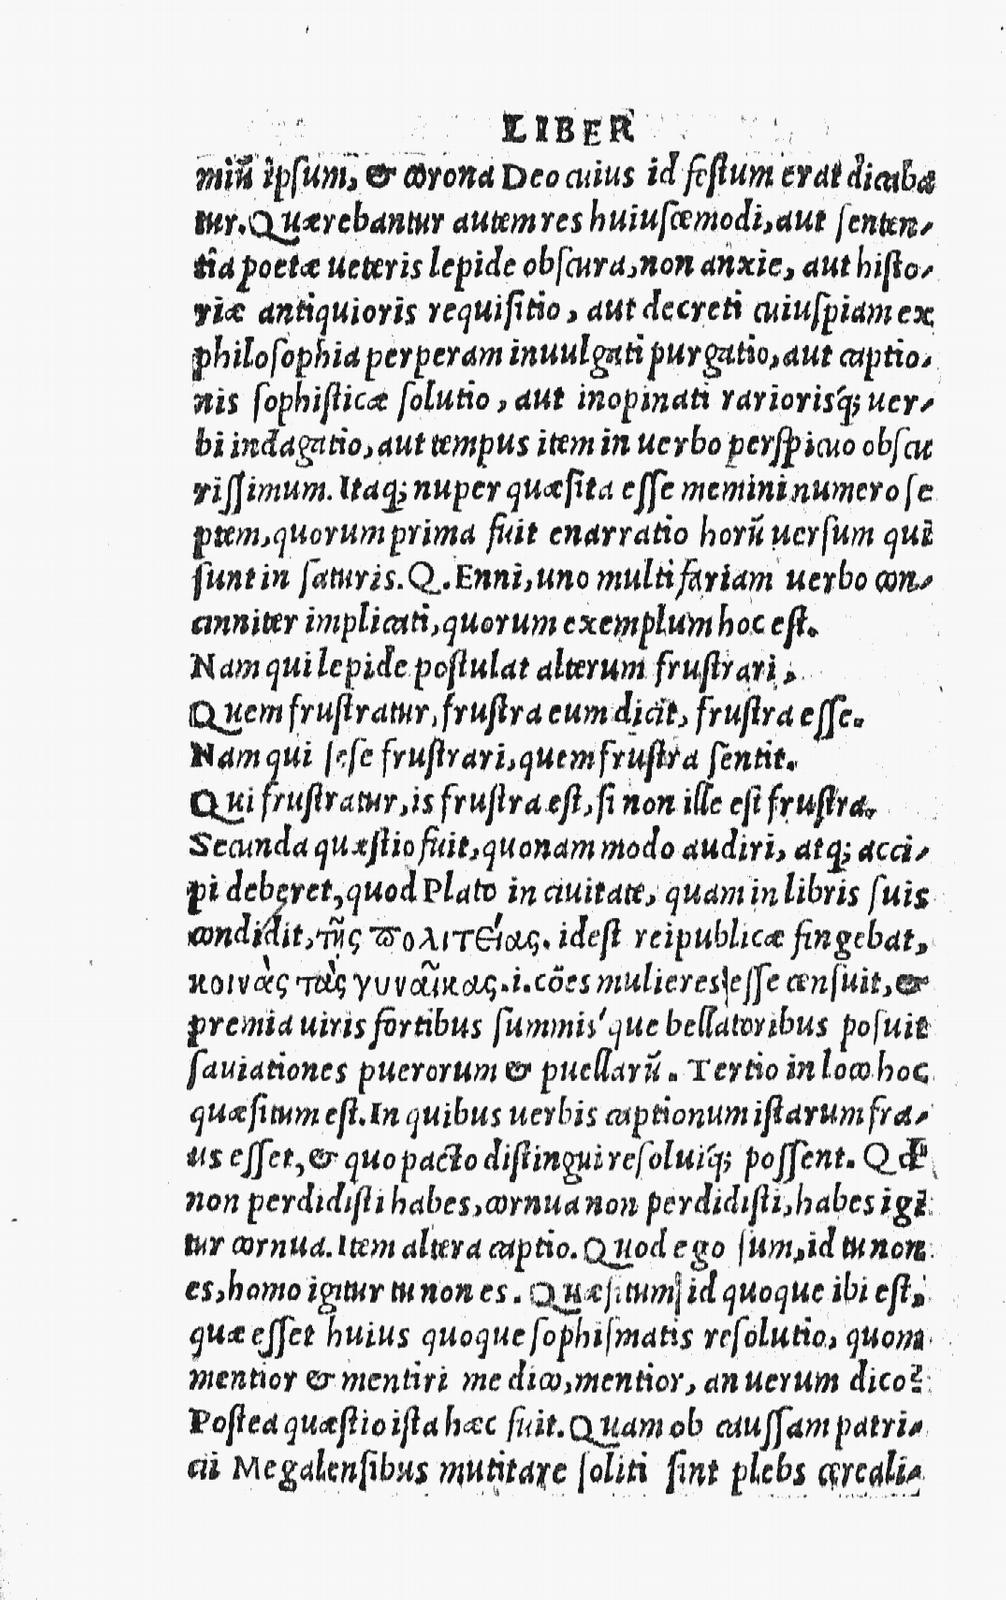 LIBER
miũ ipsum, & corona Deo cuius id festum erat dicaba
tur. Quærebantur autem res huiuscæmodi, aut senten-
tia poetæ ueteris lepide obscura, non anxie, aut histo-
riæ antiquioris requisitio, aut decreti cuiuspiam ex
philosophia perperam inuulgati purgatio, aut captio-
nis sophisticæ solutio, aut inopinati rariorisq́; uer-
bi indagatio, aut tempus item in uerbo perspicuo obscu
rissimum. Itaq; nuper quæsita esse memini numero se
ptem, quorum prima fuit enarratio horũ uersum qui
sunt in saturis. Q. Enni, uno multifariam uerbo con-
cinniter implicati, quorum exemplum hoc est.
Nam qui lepide postulat alterum frustrari,
Quem frustratur, frustra eum dicit, frustra esse.
Nam qui sese frustrari, quem frustra sentit.
Qui frustratur, is frustra est, si non ille est frustra.
Secunda quæstio fuit, quonam modo audiri, atq; acci-
pi deberet, quod Plato in ciuitate, quam in libris suis
condidit, τῆς πολιτείας. idest reipublicæ fingebat,
κοινὰς τὰς γυναῖκας .i. cões mulieres esse censuit, &
premia uiris fortibus summis'que bellatoribus posuit
sauiationes puerorum & puellarũ. Tertio in loco hoc
quæsitum est. In quibus uerbis captionum istarum fra-
us esset, & quo pacto distingui resoluiq́; possent. Qđ
non perdidisti habes, cornua non perdidisti, habes igi
tur cornua. Item altera captio. Quod ego sum, id tu non
es, homo igitur tu non es. Quæsitum id quoque ibi est,
quæ esset huius quoque sophismatis resolutio, quom
mentior & mentiri me dico, mentior, an uerum dico?
Postea quæstio ista hæc fuit. Quam ob caussam patri-
cii Megalensibus mutitare soliti sint plebs cereali-